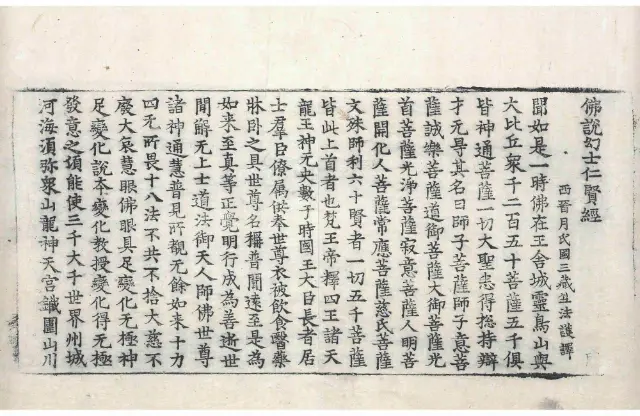 佛說幻士仁賢經
西晉月氏國三藏竺法護譯
聞如是一時佛在王舍城靈鳥山與
大比丘衆千二百五十菩薩五千俱
皆神通菩薩一切大聖悉得捴持辯
才无㝵其名曰師子菩薩師子意菩
薩誠樂菩薩道御菩薩大御菩薩光
首菩薩光淨菩薩寂意菩薩人明菩
薩開化人菩薩常應菩薩慈氏菩薩
文殊師利六十賢者一切五千菩薩
皆此上首者也梵王帝釋四王諸天
龍王神无央數子時國王大臣長者居
士羣臣僚属供奉世尊衣被飲食醫藥
牀卧之具世尊名攝普聞遠至是為
如來至真等正覺明行成為善逝世
閒解无上士道法御天人師佛世尊
諸神通慧普見所覩无餘如來十力
四无所畏十八法不共不捨大慈不
癈大哀慧眼佛眼具足變化无極神
足變化說夲變化教授變化得无極
發意之頃能使三千大千世界州城
河海湏弥衆山龍神天宮讖圖山川